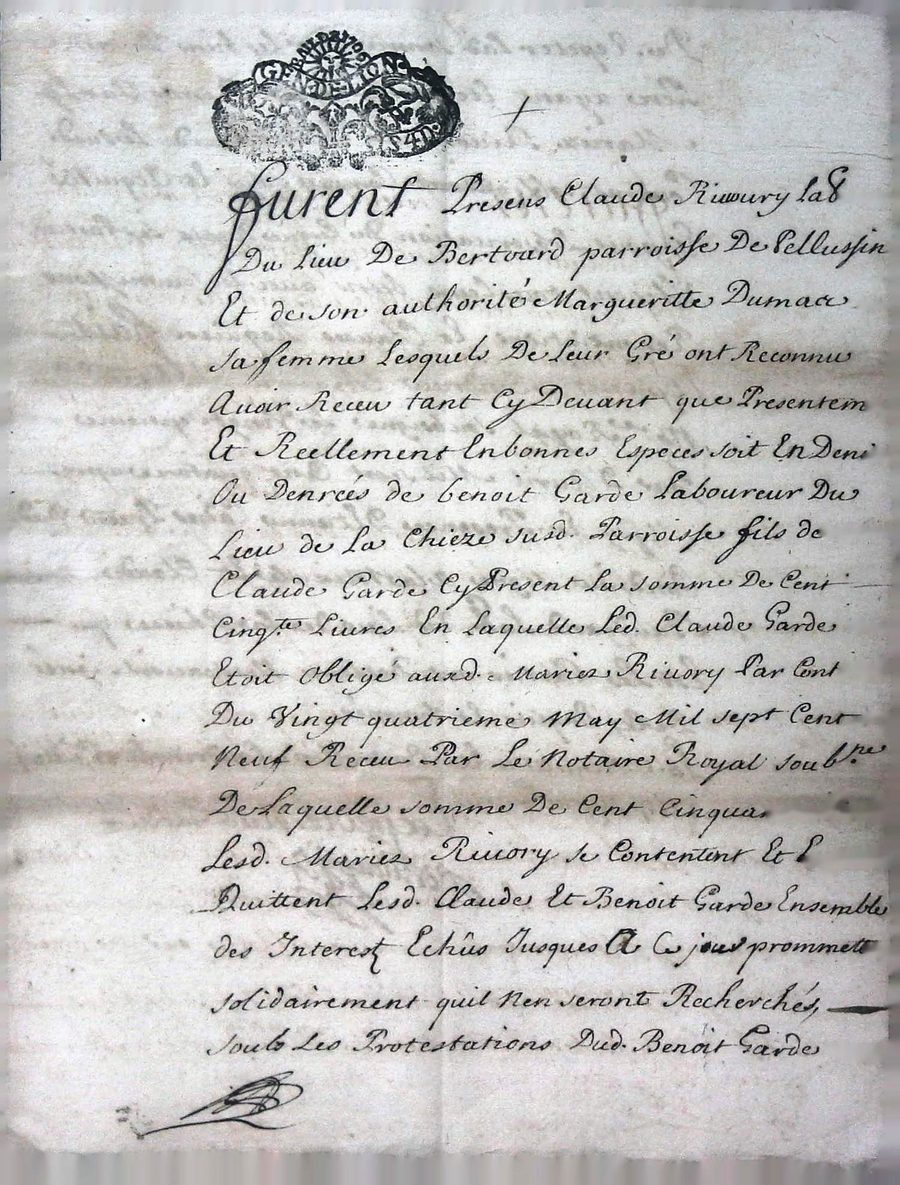 GEN·DE·LION
S4D.
furent Presens Claude Riuoury Lab
Du Lieu De Bertoard parroisse De Pellussin
Et de son authorité Margueritte Dumas
sa femme Lesquels De Leur Gré ont Reconnu
Auoir Receu tant Cy Deuant que Presentem
Et Reellement En bonnes Especes soit En Deni
Ou Denreés de benoit Garde Laboureur Du
Lieu de La Chieze susd. Parroisse fils de
Claude Garde Cy Present La somme De Cent
Cinqte Liures En Laquelle Led. Claude Garde
Etoit Obligé auxd. Mariez Riuory Par Cont
Du Vingt quatrieme May Mil sept Cent
Neuf Receu Par Le Notaire Royal soub.ne
De Laquelle somme De Cent Cinquan
Lesd. Mariez Riuory se Contentent Et E
Quittent Lesd. Claude Et Benoit Garde Ensemble
des Interest Echûs Jusques A Ce jour promett
solidairement quil Nen seront Recherchés,
soubs Les Protestations Dud. Benoit Garde